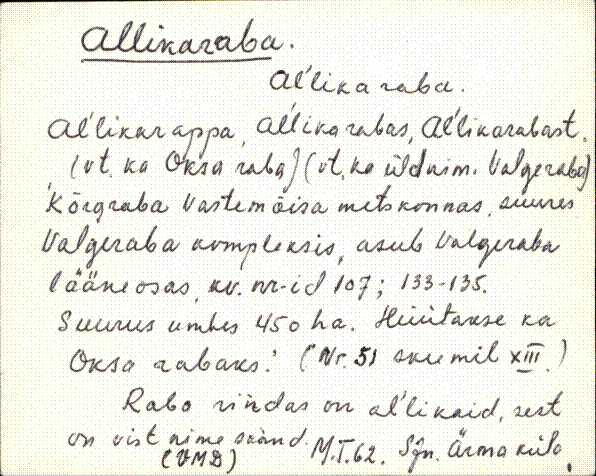 Allikaraba.
Al'lika raba.
Al'likarappa, Al'likarabas, Al'likarabast.
(vt. ka Oksa raba) (vt. ka üldnim. Valgeraba)
Kõrgraba Vastemõisa metskonnas, suures
Valgeraba kompleksis, asub Valgeraba
lääneosas, kv. nr-id 107; 133-135.
Suurus umbes 450 ha. Hüütakse ka
Oksa rabaks. (Nr. 51 skeemil XIII.)
Raba rindas on al'likaid, sest
on vist nime saand. M.T. 62. Sjn. Ärma küla.
(VMD)